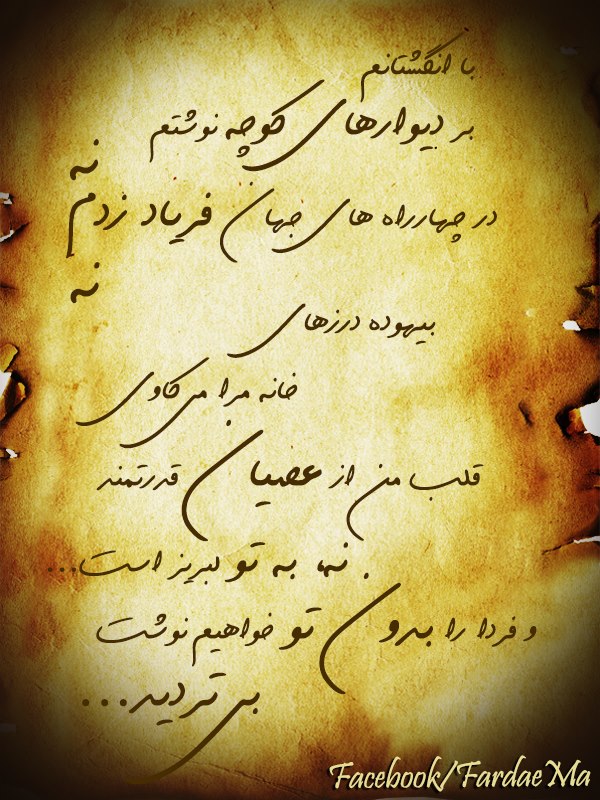 با انگشتانم
بر دیوارهای کوچه نوشتم
نه
در چهارراه های جهان فریاد زدم
نه
بیهوده درزهای
خانه مرا می کاوی
قلب من از عصیان قدرتمند
نه به تو لبریز است...
و فردا را بدون تو خواهیم نوشت
بی تردید...
Facebook/FardaeMa